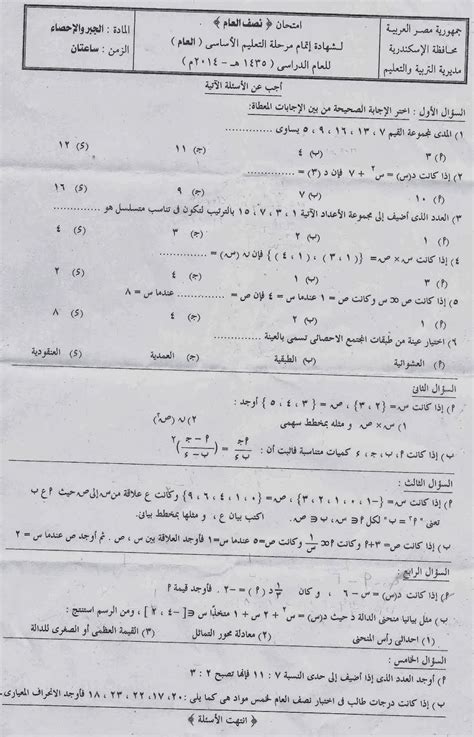 جمهورية مصر العربية
محافظة الإسكندرية
مديرية التربية والتعليم
امتحان ﴿ نصف العام ﴾
لشهادة إتمام مرحلة التعليم الأساسى ( العام )
للعام الدراسى ( ١٤٣٥ هـ - ٢٠١٤م )
المادة : الجبر والإحصاء
الزمن : ساعتان
أجب عن الأسئلة الآتية
السؤال الأول : اختر الإجابة الصحيحة من بين الإجابات المعطاة:
١) المدى لمجموعة القيم ٧ ، ١٣ ، ١٦ ، ٩ ، ٥ يساوى ............
(أ) ٣ (ب) ٤ (ج) ١١ (د) ١٢
٢) إذا كانت د(س) = س٢ + ٧ فإن د (٣) = ............
(أ) ١٠ (ب) ٧ (ج) ٩ (د) ١٦
٣) العدد الذى أضيف إلى مجموعة الأعداد الآتية ١ ، ٣ ، ٧ ، ١٥ بالترتيب لتكون فى تناسب متسلسل هو ............
(أ) ١ (ب) ٢ (ج) ٣ (د) ٤
٤) إذا كانت س × ص = { (١ ، ٣) ، (١ ، ٤) } فإن ن (س) = ............
(أ) ٣ (ب) ١ (ج) ٤ (د) ٢
٥) إذا كانت ص ∝ س وكانت ص = ١ عندما س = ٤ فإن ص = ............ عندما س = ٨
(أ) ١ (ب) ٢ (ج) ٤ (د) ٨
٦) اختيار عينة من طبقات المجتمع الاحصائى تسمى بالعينة ............
(أ) العشوائية (ب) الطبقية (ج) العمدية (د) العنقودية
السؤال الثانى
أ) إذا كانت س = { ٢ ، ٣ } ، ص = { ٣ ، ٤ ، ٥ } أوجد :
١) س × ص و مثله بمخطط سهمى ٢) ن (ص٢)
ب) إذا كانت أ ، ب ، ج ، د كميات متناسبة فأثبت أن : أج / ب د = ( أ - ج / ب - د )٢
السؤال الثالث :
أ) إذا كانت س = {-١ ، ٠ ، ١ ، ٢ ، ٣} ، ص = {٠ ، ١ ، ٤ ، ٦ ، ٩} وكانت ع علاقة من س إلى ص حيث أ ع ب
تعنى " أ٢ = ب " لكل أ ∈ س ، ب ∈ ص اكتب بيان ع ، و مثلها بمخطط بيانى.
ب) إذا كانت ص = ٣ + أ وكانت أ ∝ ١/س وكانت ص = ٥ عندما س = ١ فأوجد العلاقة بين س ، ص . ثم أوجد ص عندما س = ٢
السؤال الرابع :
أ) إذا كانت د(س) = س - ٦ ، وكان د (أ) = -٢ . فأوجد قيمة أ
ب) مثل بيانيا منحنى الدالة د (س) = س٢ + ٢ س + ١ متخذا س ∈ [ -٤ ، ٢ ] ، ومن الرسم استنتج :
(١) احداثى رأس المنحنى (٢) معادلة محور التماثل (٣) القيمة العظمى أو الصغرى للدالة
السؤال الخامس :
أ) أوجد العدد الذى إذا أضيف إلى حدى النسبة ٧ : ١١ فإنها تصبح ٢ : ٣
ب) إذا كانت درجات طالب فى اختبار نصف العام لخمس مواد هى كما يلى : ٢٠ ، ١٧ ، ٢٢ ، ٢٣ ، ١٨ فأوجد الانحراف المعيارى.
﴿ انتهت الأسئلة ﴾